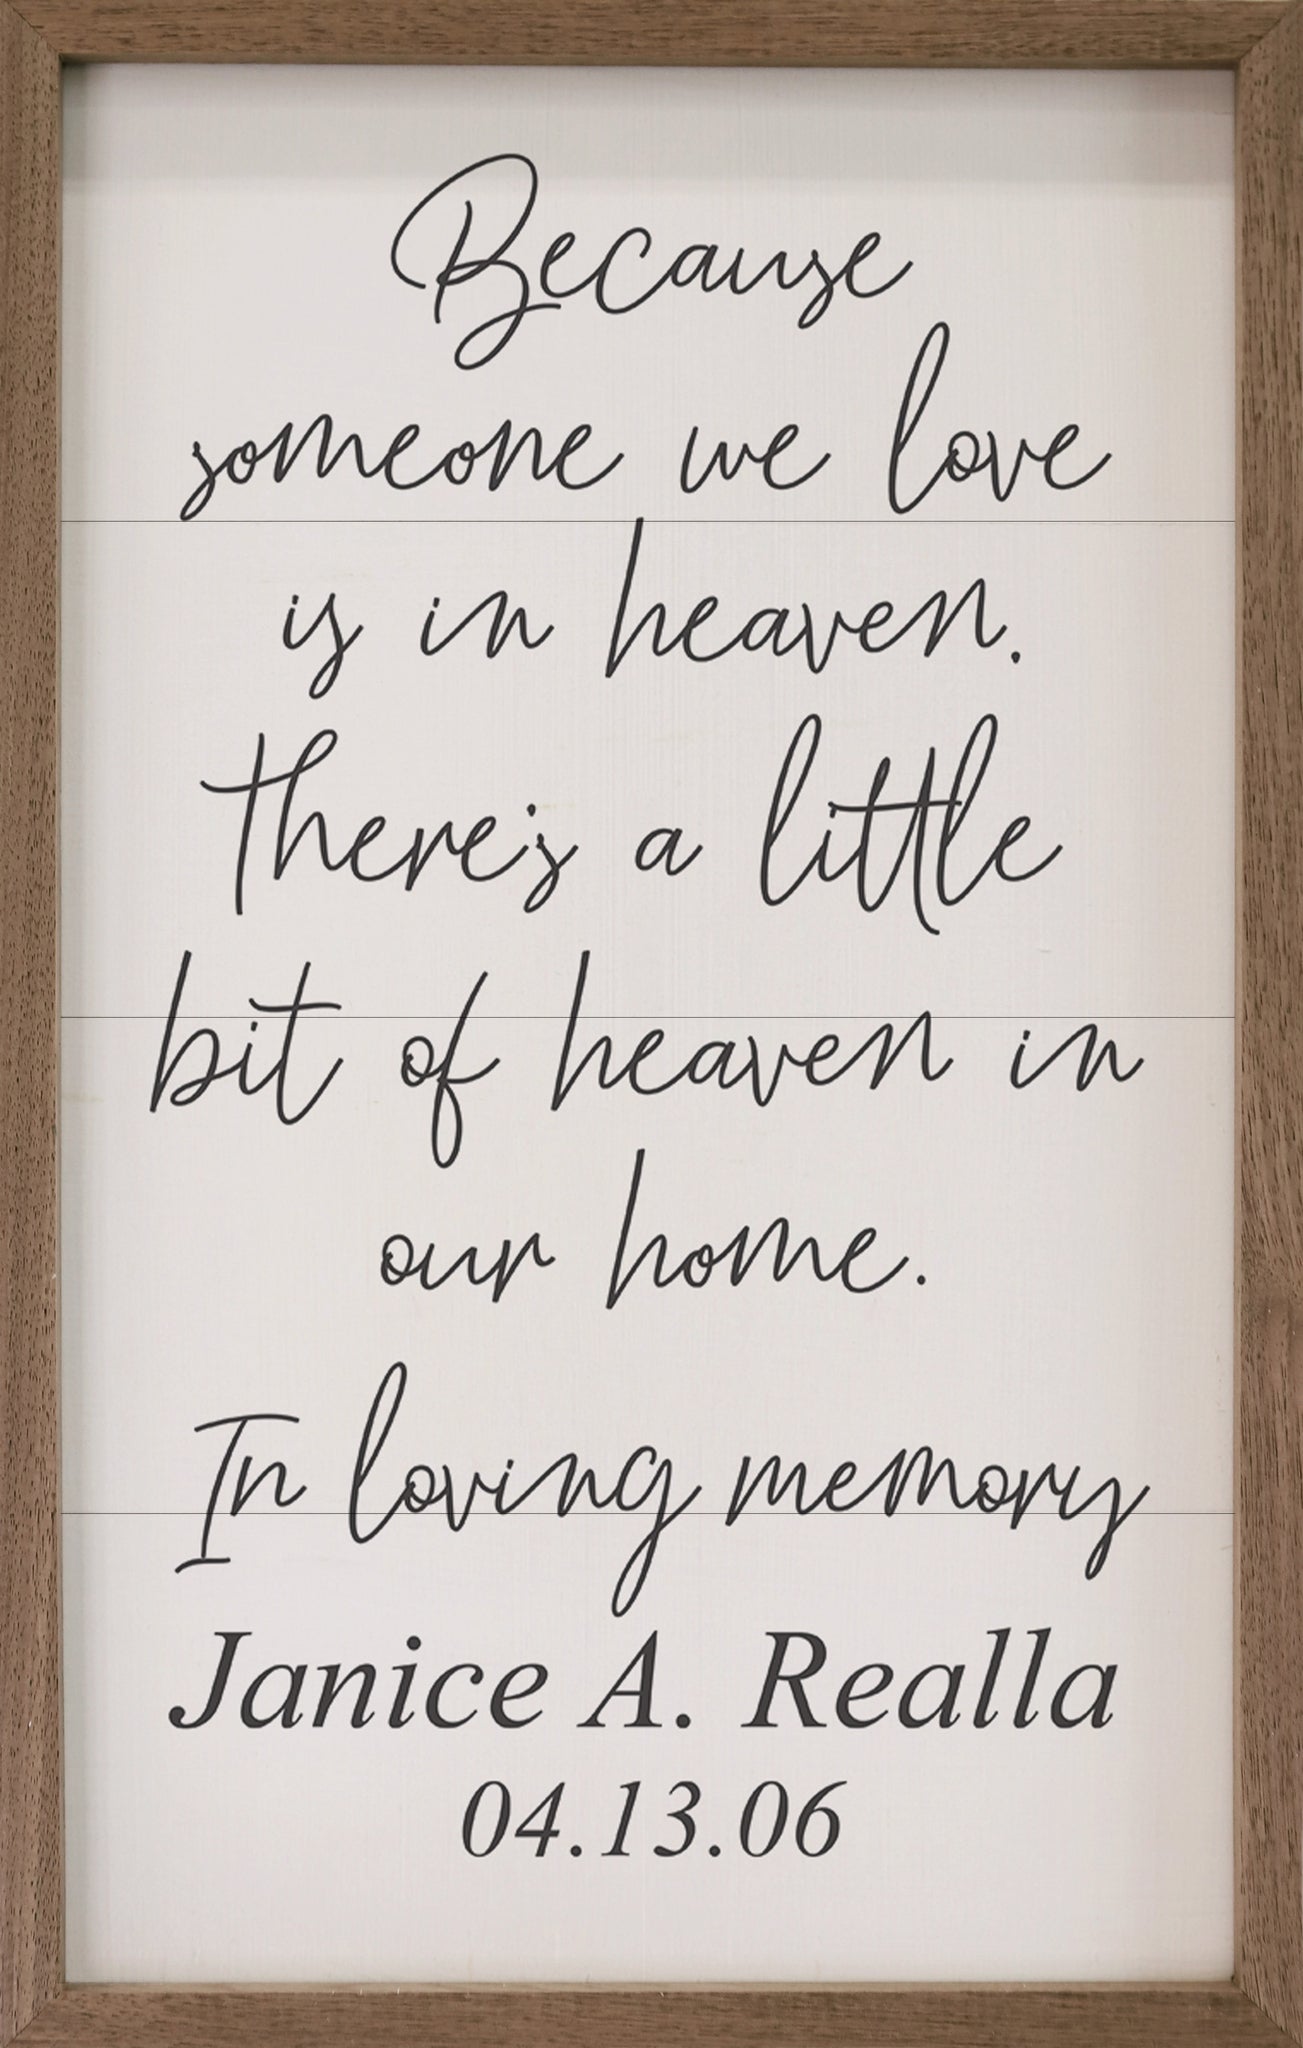 Because
someone we love
is in heaven.
There's a little
bit of heaven in
our home.
In loving memory
Janice A. Realla
04.13.06